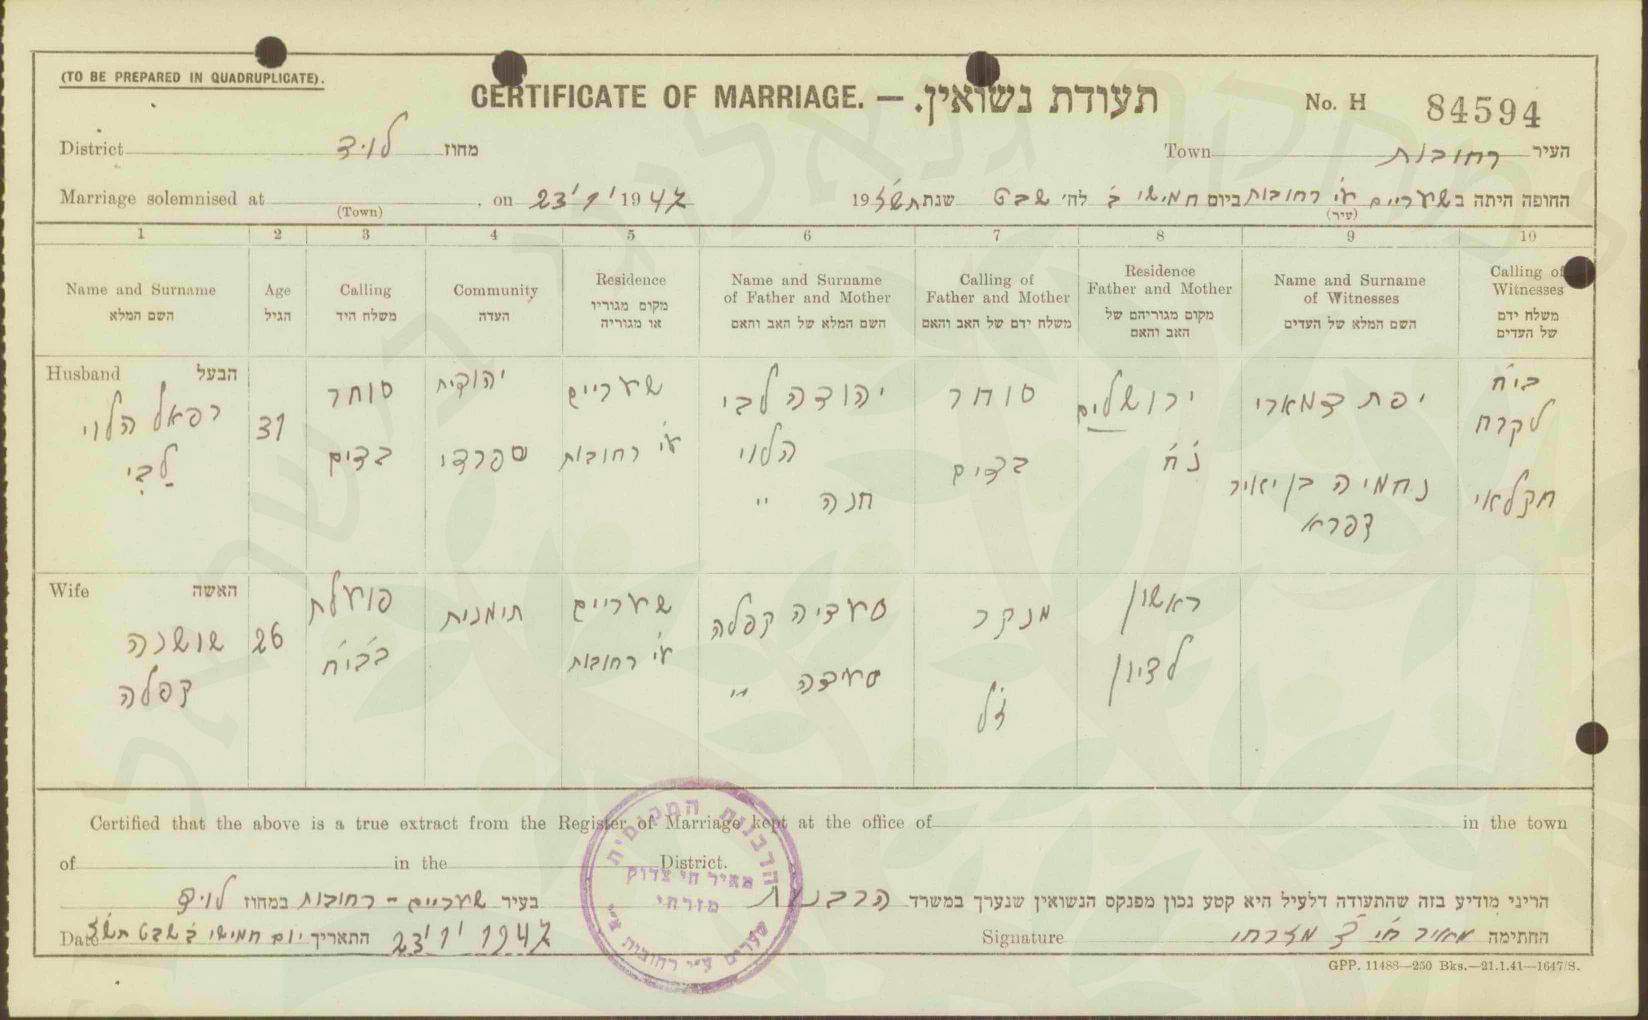 (TO BE PREPARED IN QUADRUPLICATE).
CERTIFICATE OF MARRIAGE. — תעודת נשואין.
No. H 84594
District לוד מחוז
Town רחובות העיר
Marriage solemnised at , on 23'1'1947
(Town)
החופה היתה בשעריים ע"י רחובות ביום חמישי ב' לח' שבט שנת תש"ז 19
(עיר)
1 2 3 4 5 6 7 8 9 10
Name and Surname
השם המלא
Age
הגיל
Calling
משלח היד
Community
העדה
Residence
מקום מגוריו
או מגוריה
Name and Surname
of Father and Mother
השם המלא של האב והאם
Calling of
Father and Mother
משלח ידם של האב והאם
Residence
Father and Mother
מקום מגוריהם של
האב והאם
Name and Surname
of Witnesses
השם המלא של העדים
Calling of
Witnesses
משלח ידם
של העדים
Husband הבעל
רפאל הלוי
לבי
31
סוחר
בדים
יהודית
ספרדי
שעריים
ע"י רחובות
יהודה לבי
הלוי
חנה "
סוחר
בדים
ירושלים
נ"ח
יפת דמארי
נחמיה בן יאיר
צפרא
בי"ח
לקרח
חקלאי
Wife האשה
שושנה
קפלה
26
פועלת
בבי"ח
תימנית
שעריים
ע"י רחובות
סעדיה קפלה
סעידה "
מנקר
ז"ל
ראשון
לציון
Certified that the above is a true extract from the Register of Marriage kept at the office of in the town
of in the District.
הריני מודיע בזה שהתעודה דלעיל היא קטע נכון מפנקס הנשואין שנערך במשרד הרבנות
בעיר שעריים - רחובות במחוז לוד
Date 23'1'1947 התאריך יום חמישי ב' שבט תש"ז
Signature מאיר ח"י צ' מזרחי החתימה
הרבנות המקומית
מאיר חי צדוק
מזרחי
שערים ע"י רחובות א"י
GPP. 11488—250 Bks.—21.1.41—1647/S.